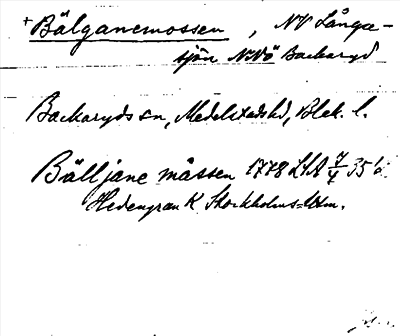 + Bälganemossen, NV Långa-
sjön NNÖ Backaryd
Backaryds sn, Medelstads hd, Blek. l.
Bälljane måssen 1778 LSA 7/4 35
Hedengran K Stockholms-